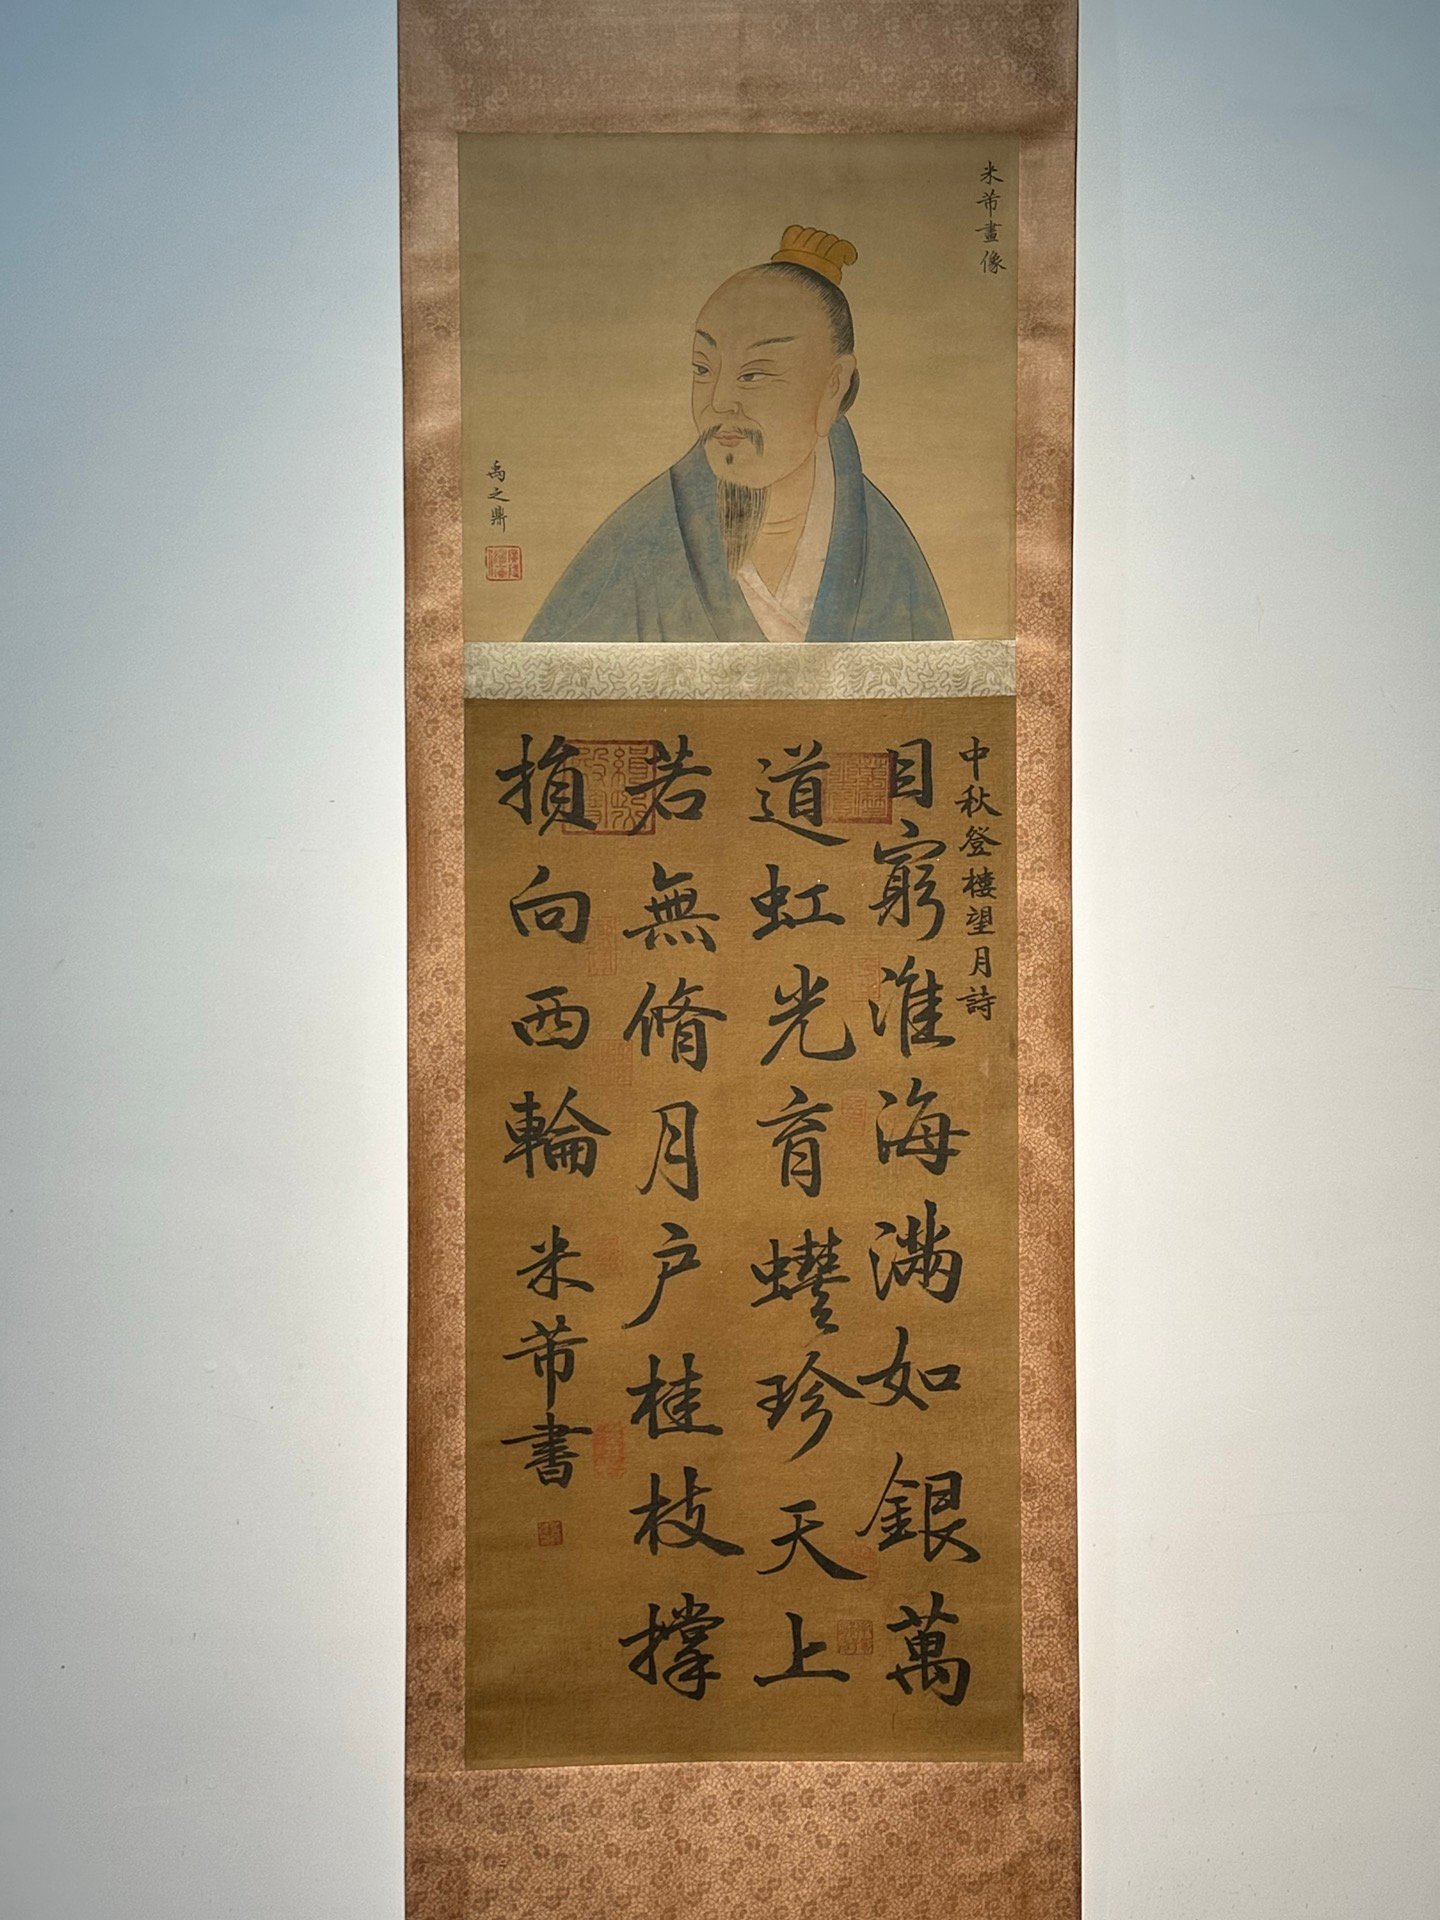 米芾畫像
禹之鼎
中秋登樓望月詩
目窮淮海滿如銀萬
道虹光育蠙珍天上
若無脩月戶桂枝撐
損向西輪
米芾書